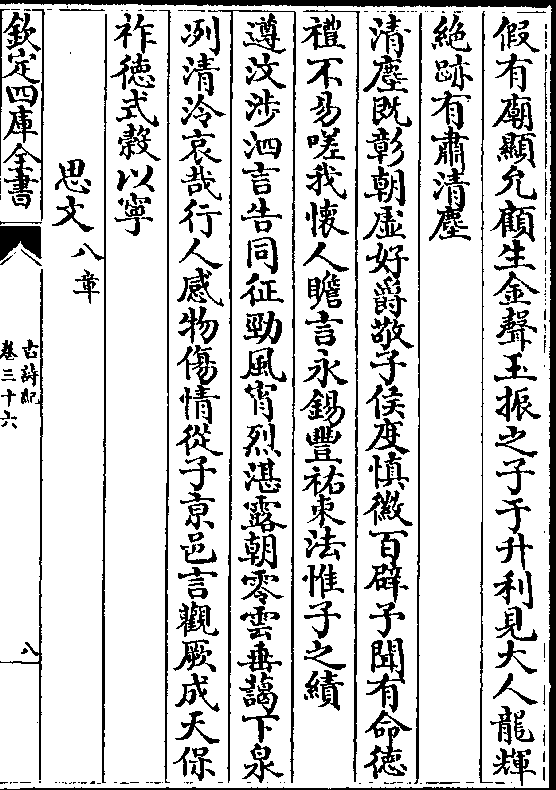 假有廟顯允顧生金聲玉振之子于升利見大人龍輝
絶跡有肅清塵
清塵既彰朝虛好爵敬子侯度慎徽百辟予聞有命徳
禮不易嗟我懷人瞻言永錫豐祐東法惟子之績
遵汶渉泗言告同征勁風宵烈湛露朝零雲垂藹下泉
冽清泠哀哉行人感物傷情從子京邑言觀厥成天保
祚徳式榖以寧
思文八章
欽定四庫全書
古詩紀
卷三十六
八